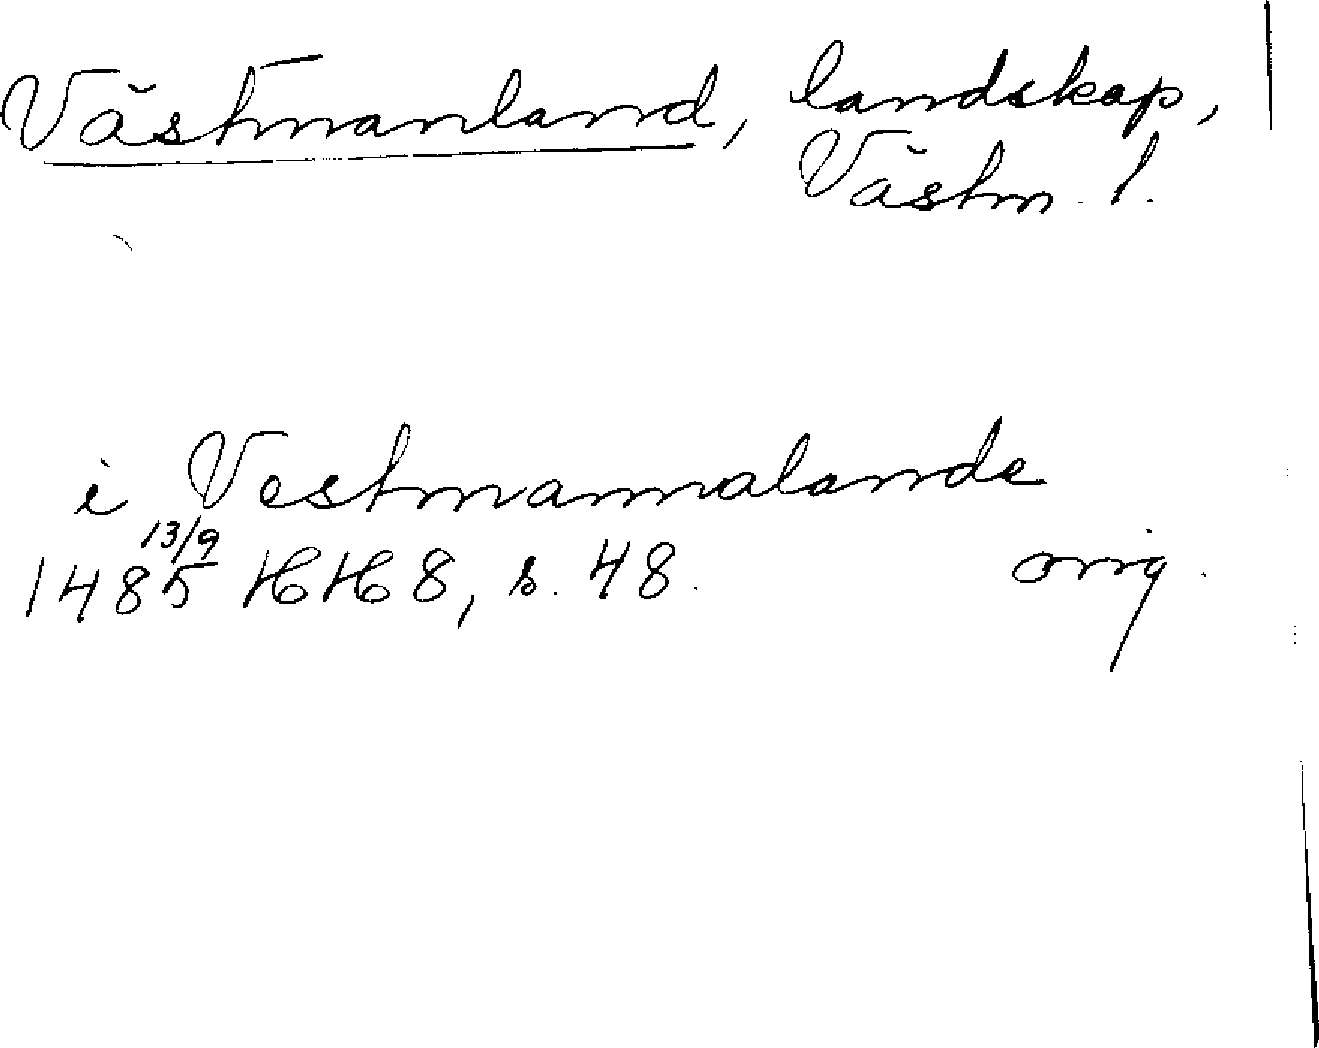 Västmanland, landskap,
Västm. l.
i Vestmannalande
13/9
1485 HH 8, s. 48. orig.